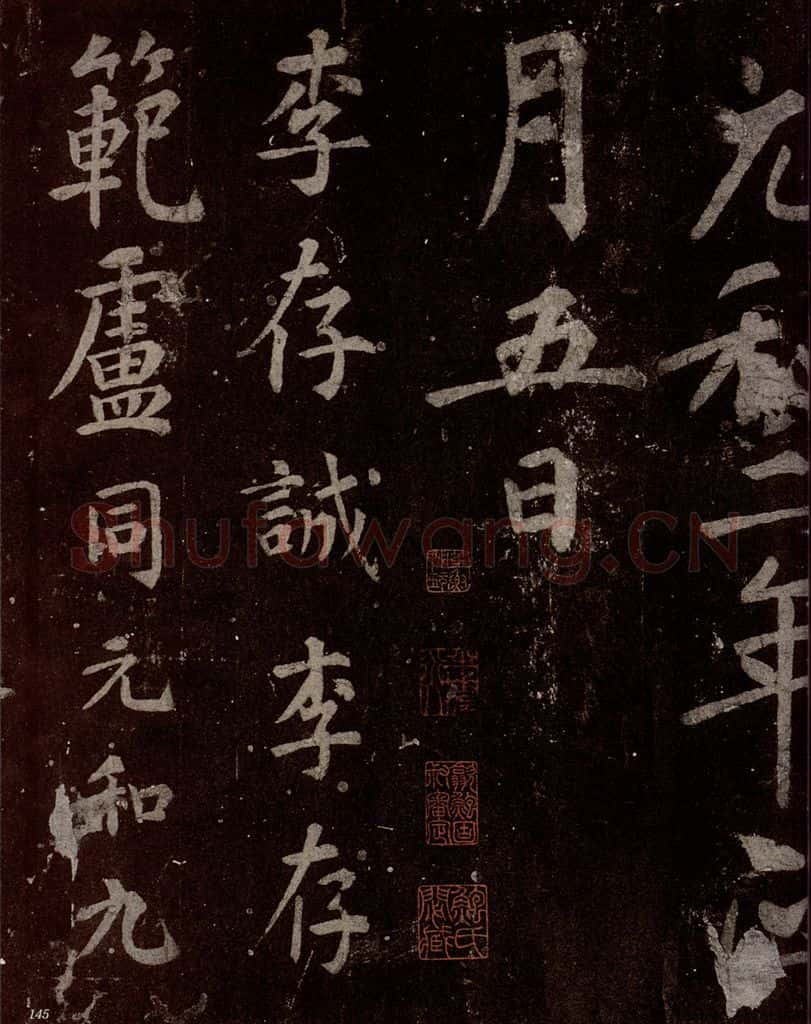 元和二年
月五日
李存誠 李存
範盧同元和九
Shufawang.CN
145